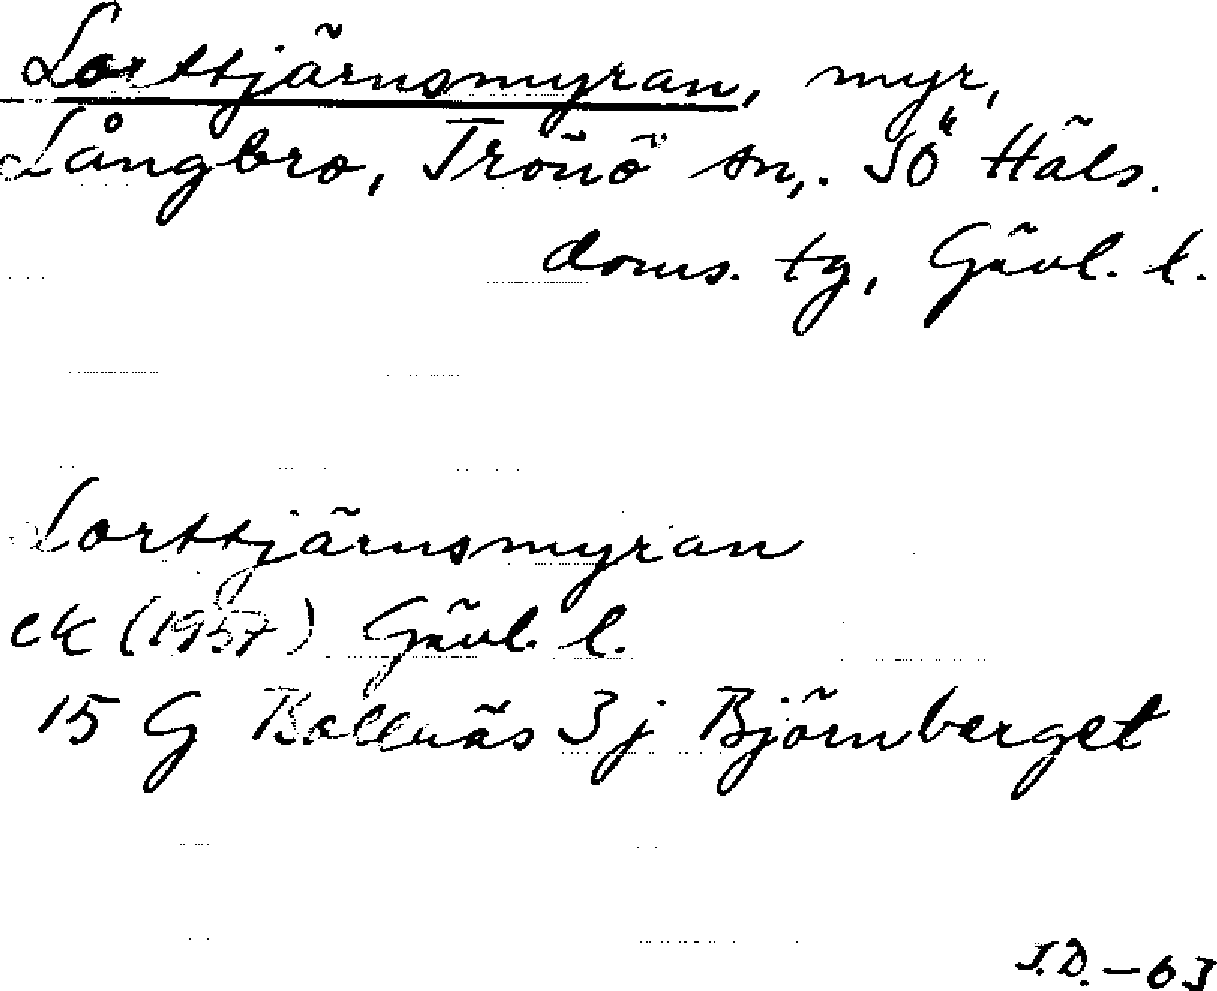 Lorttjärnsmyran, myr,
Långbro, Trönö sn,. SÖ Häls.
doms. tg, Gävl. l.
Lorttjärnsmyran
ek (1957) Gävl. l.
15 G Bollnäs 3j Björnberget
S.D. - 63